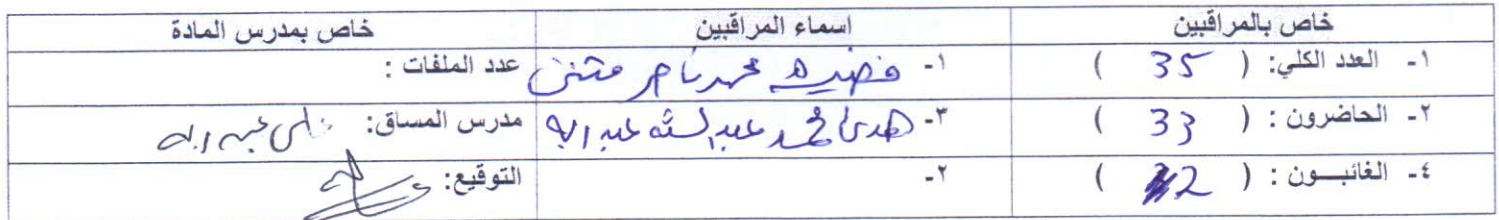 خاص بالمراقبين اسماء المراقبين خاص بمدرس المادة
١- العدد الكلي: ( 35 ) ١- محمد ناصر مثنى عدد الملفات :
٢- الحاضرون : ( 33 ) ٣- هدى محمد عبد الله مدرس المساق: علي عبد الله
٤- الغائبـــون : ( 2 ) ٢- التوقيع: